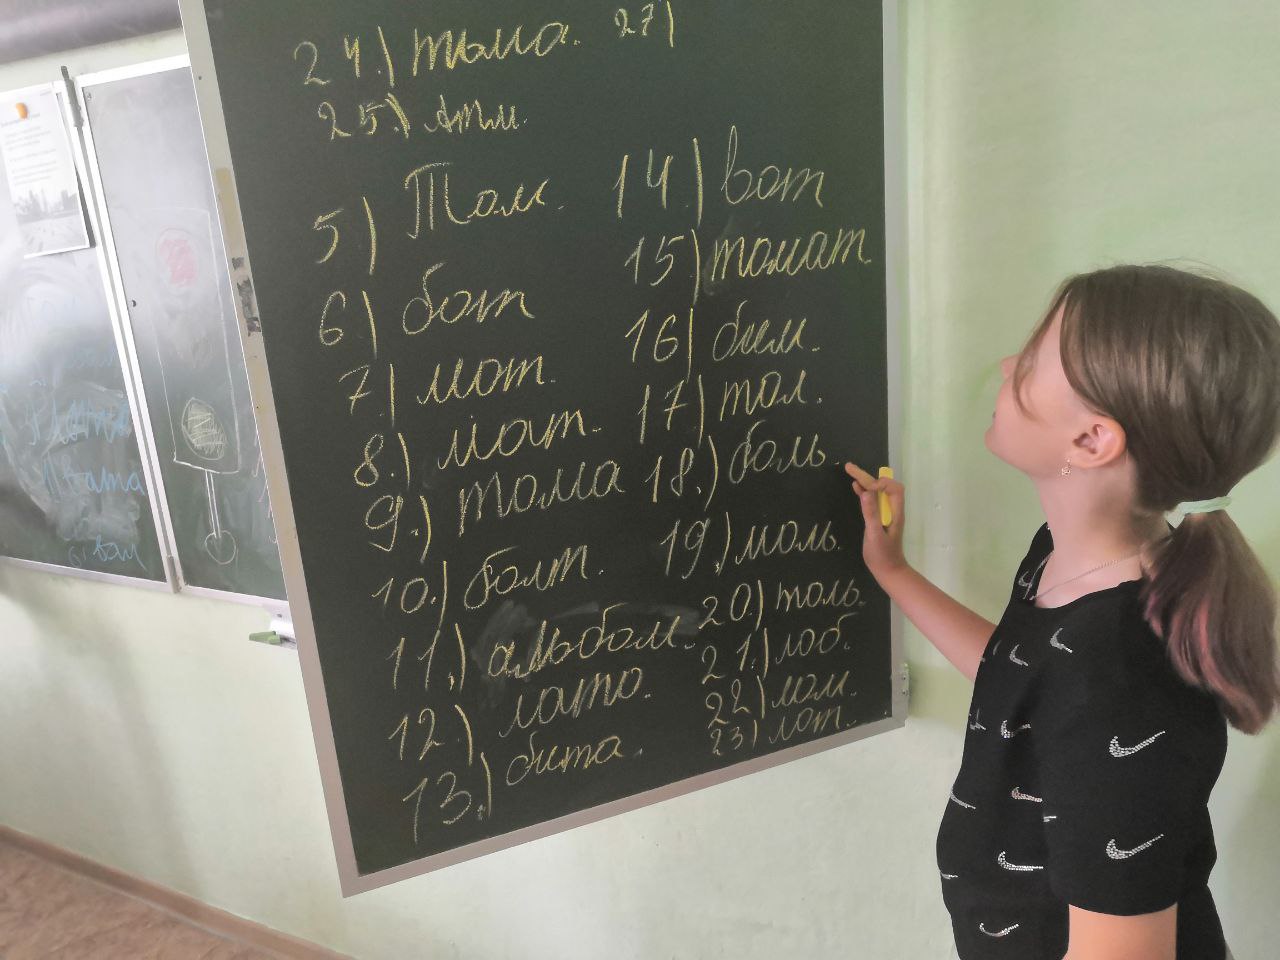 24.) тьма. 27)
25.) Атм.
5) Том.
6) бот
7.) мот.
8.) мат.
9.) тома
10.) болт.
11.) альбом.
12.) лото.
13.) бита.
14.) вот
15.) томат.
16) бим.
17) тол.
18.) боль.
19.) моль.
20.) толь.
21.) лоб.
22) лом.
23) лот.